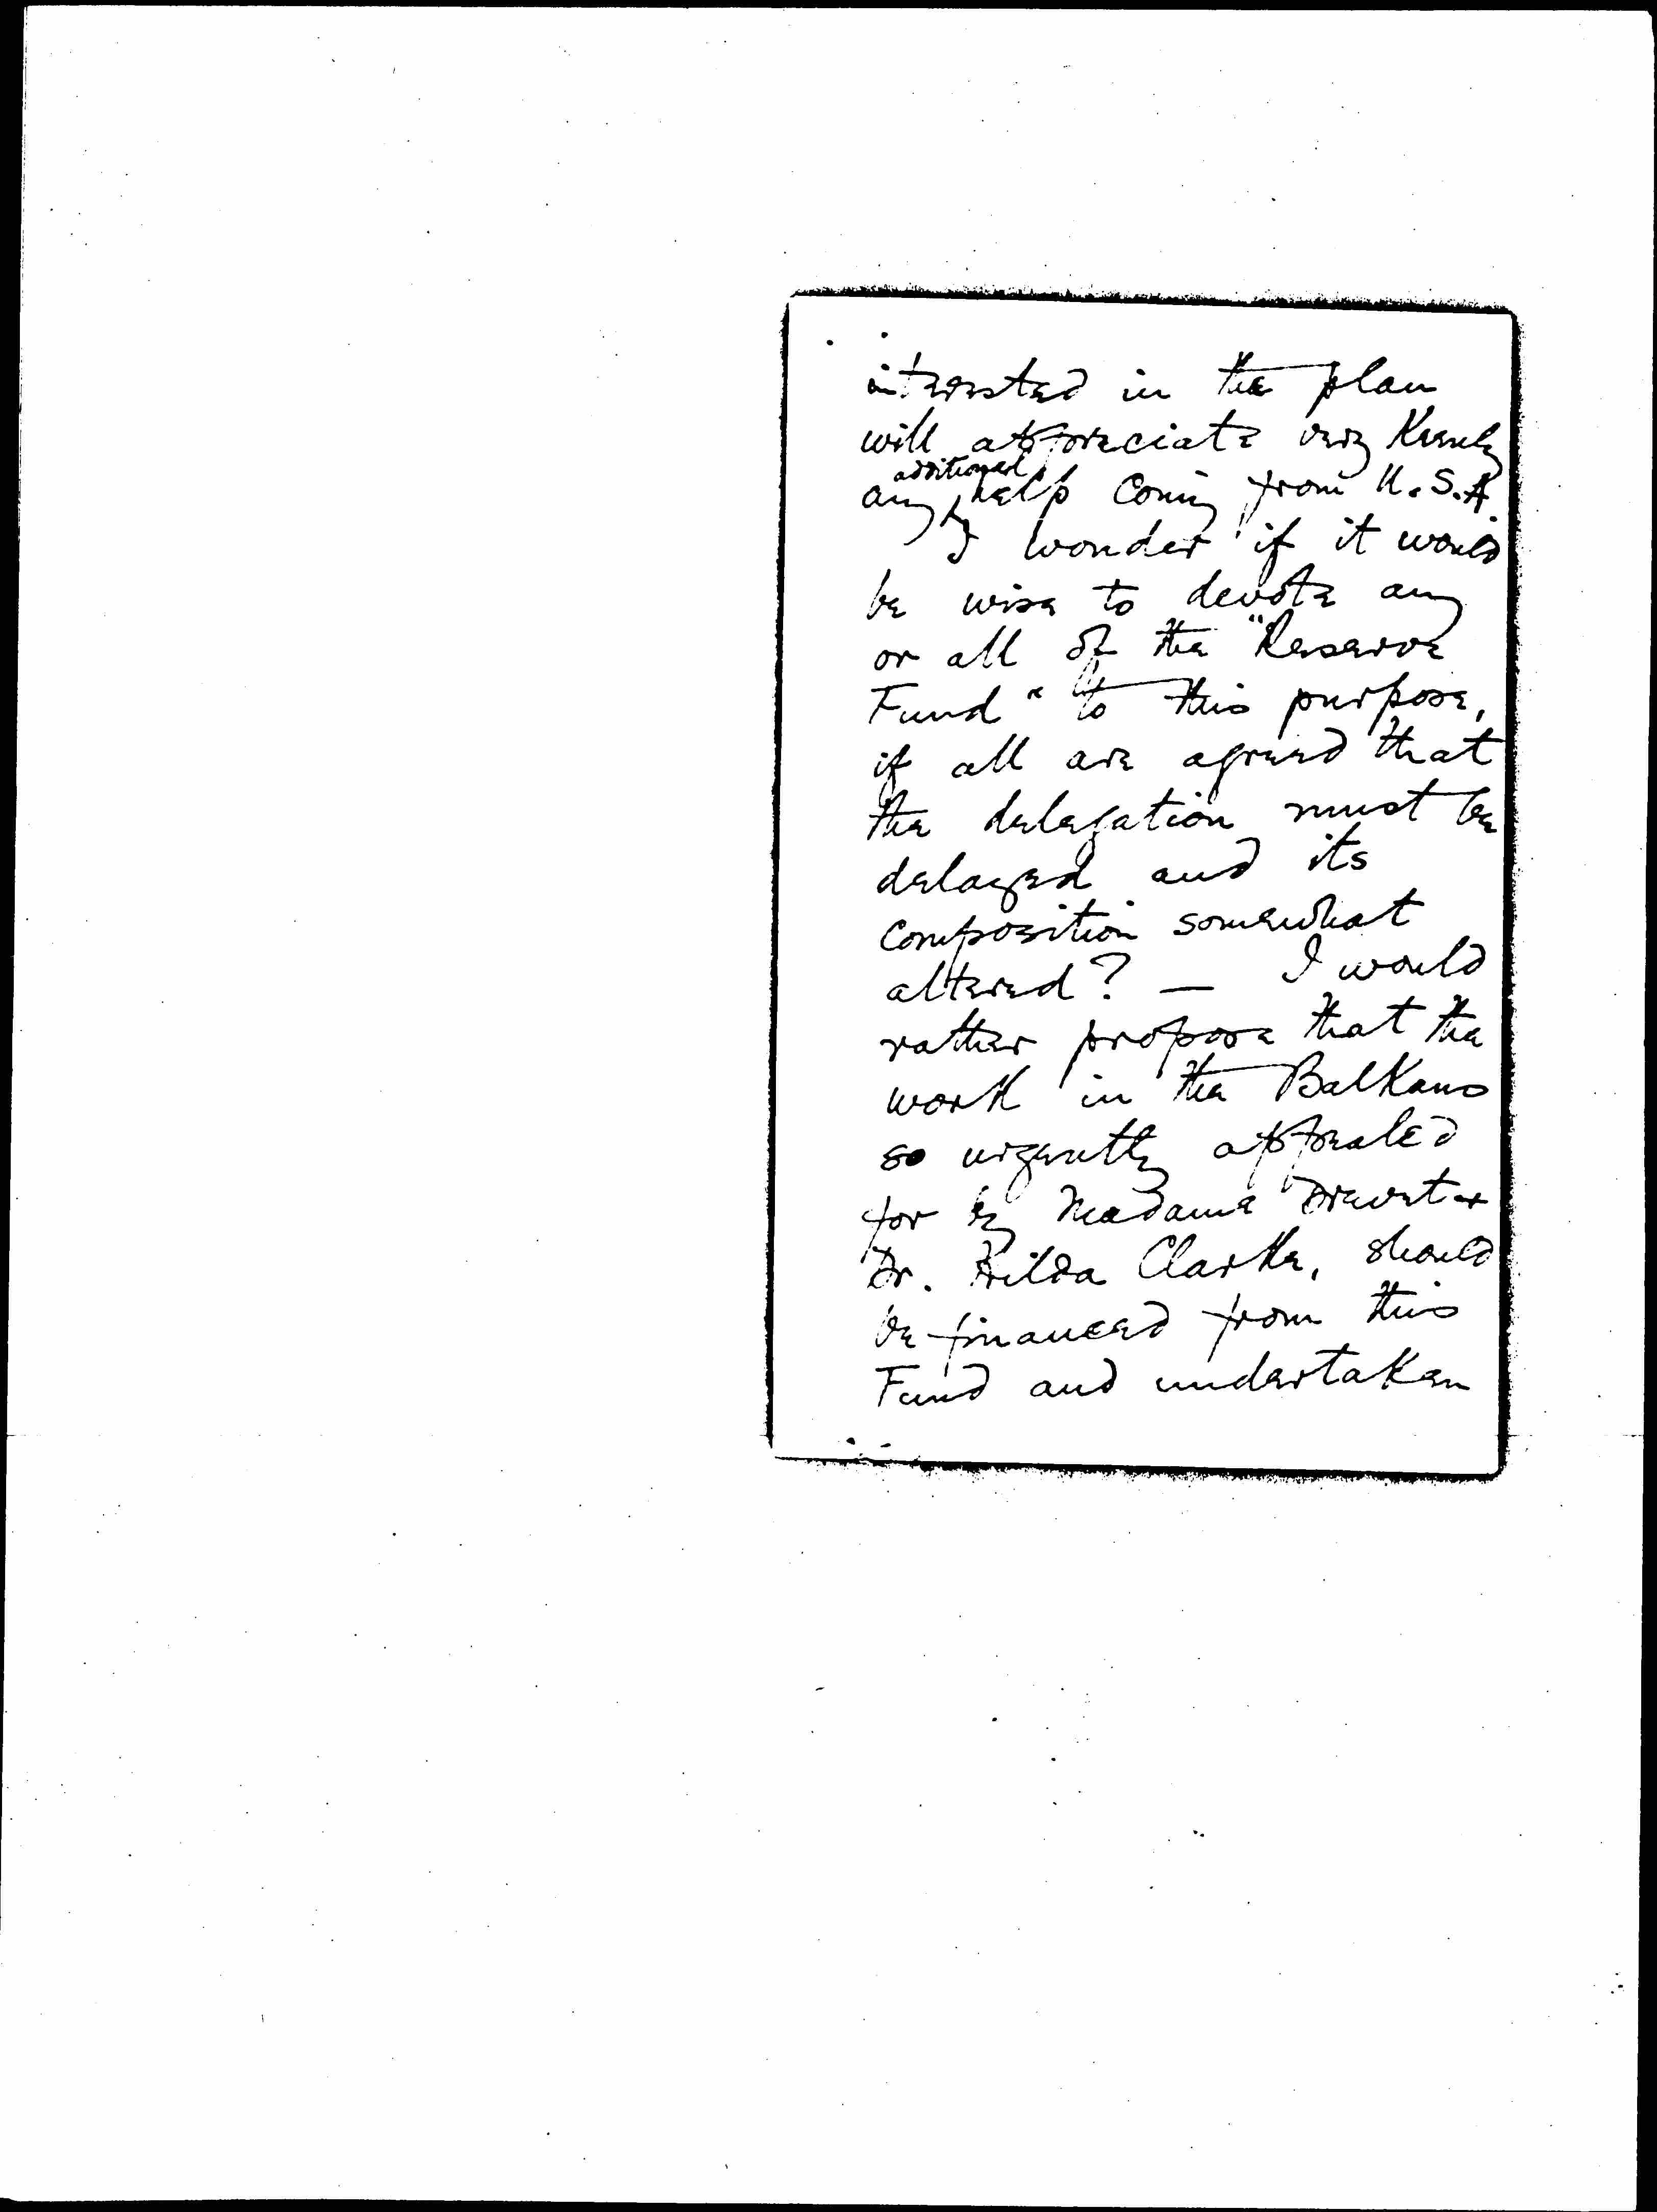 interested in the plan
will appreciate very keenly
any additional help coming from U.S.A.
I wonder if it would
be wise to devote any
or all of the "Reserve
Fund" to this purpose,
if all are agreed that
the delegation must be
delayed and its
composition somewhat
altered? — I would
rather propose that the
work in the Balkans
so urgently appealed
for by Madame Drevet +
Dr. Hilda Clarke, should
be financed from this
Fund and undertaken